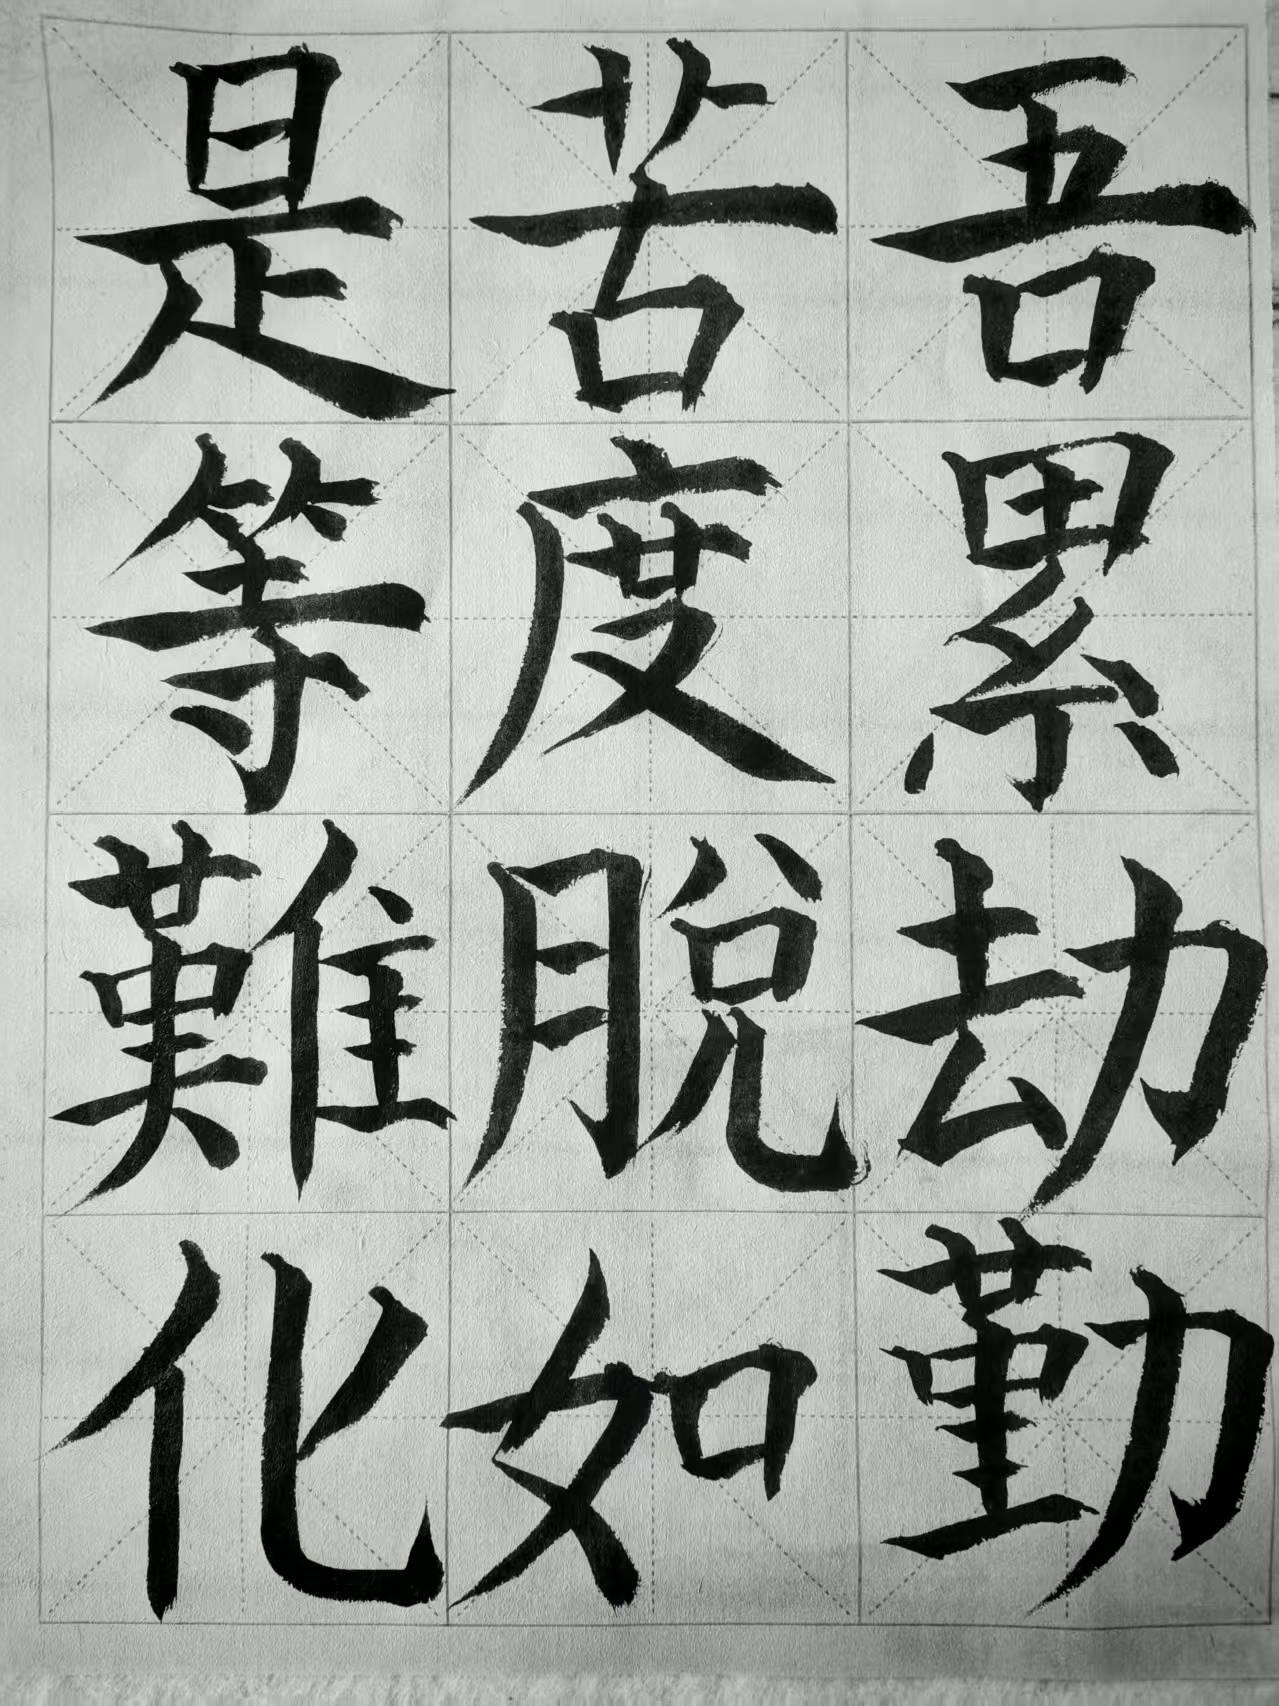 吾累劫勤
苦度脫如
是等難化